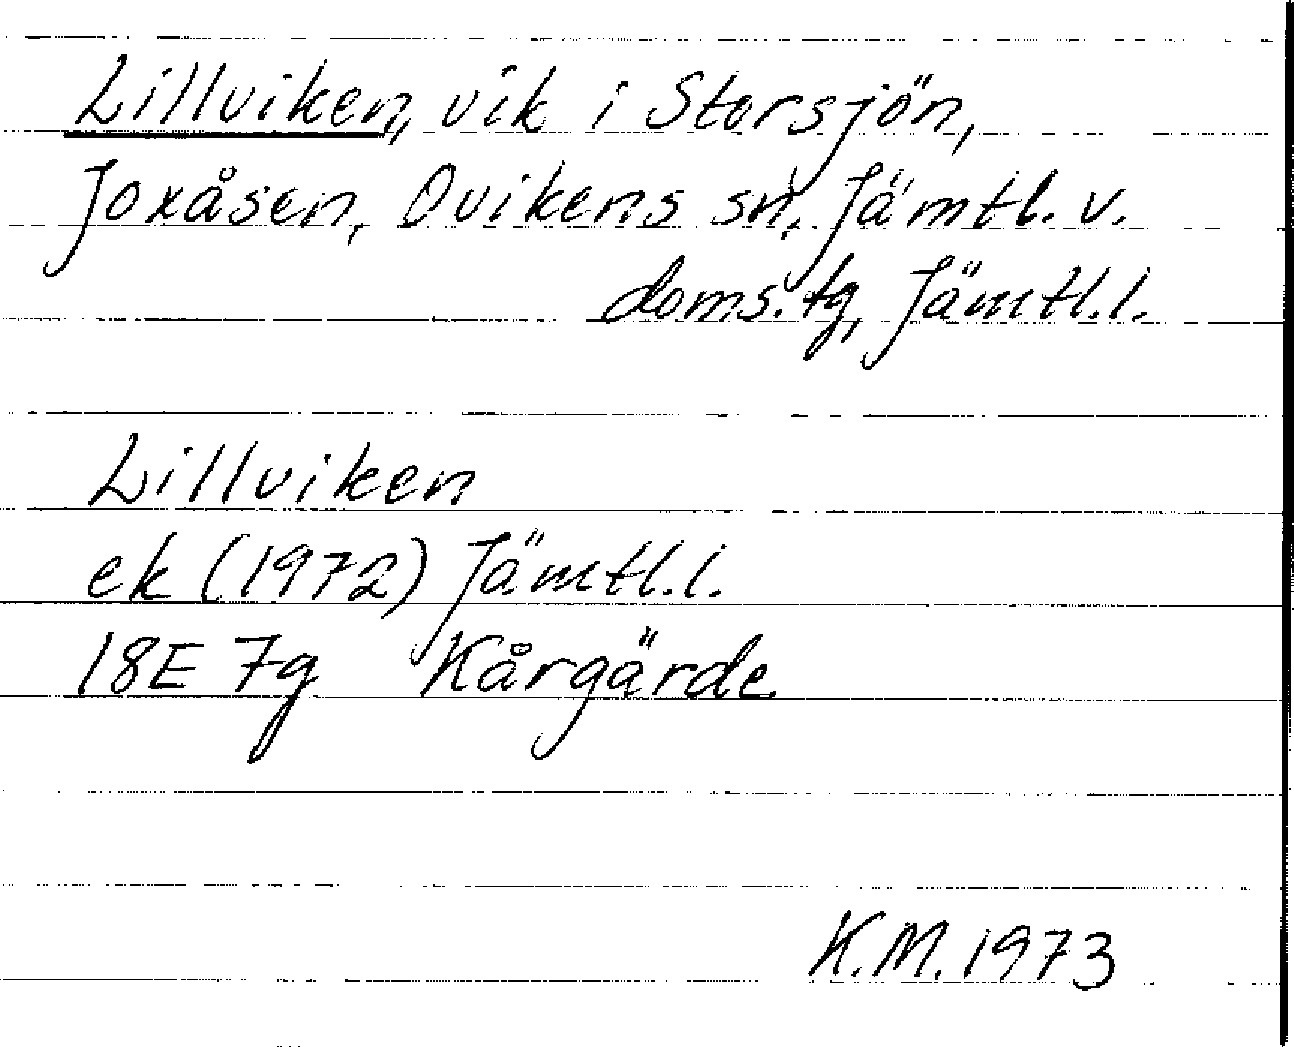 Lillviken, vik i Storsjön,
Joxåsen, Ovikens sn, Jämtl. v.
doms. tg, Jämtl. l.
Lillviken
ek (1972) Jämtl. l.
18E 7g Kårgärde
K.M. 1973